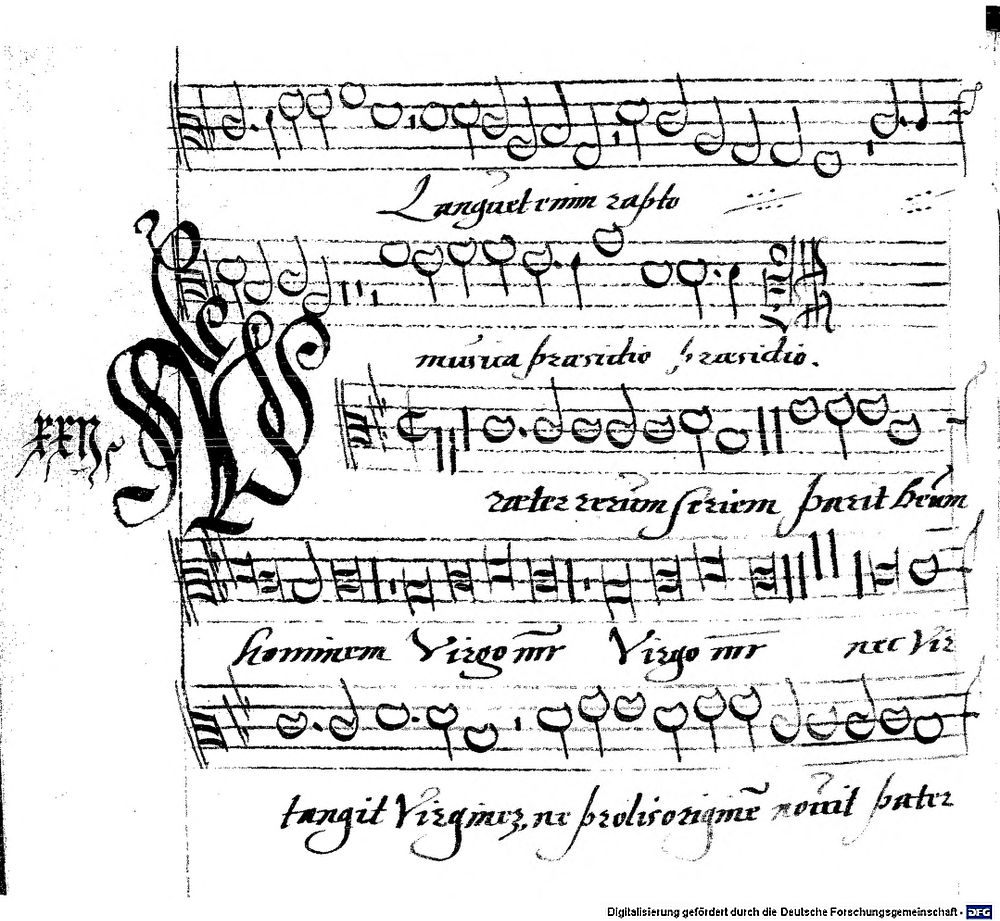 Languet enim rapto
musica præsidio præsidio.
XXIIJ
Præter rerum seriem parit deum
hominem Virgo mr̄ Virgo mr̄ nec Vir
tangit Virginez, ne prolis originē novit pater
Digitalisierung gefördert durch die Deutsche Forschungsgemeinschaft - DFG